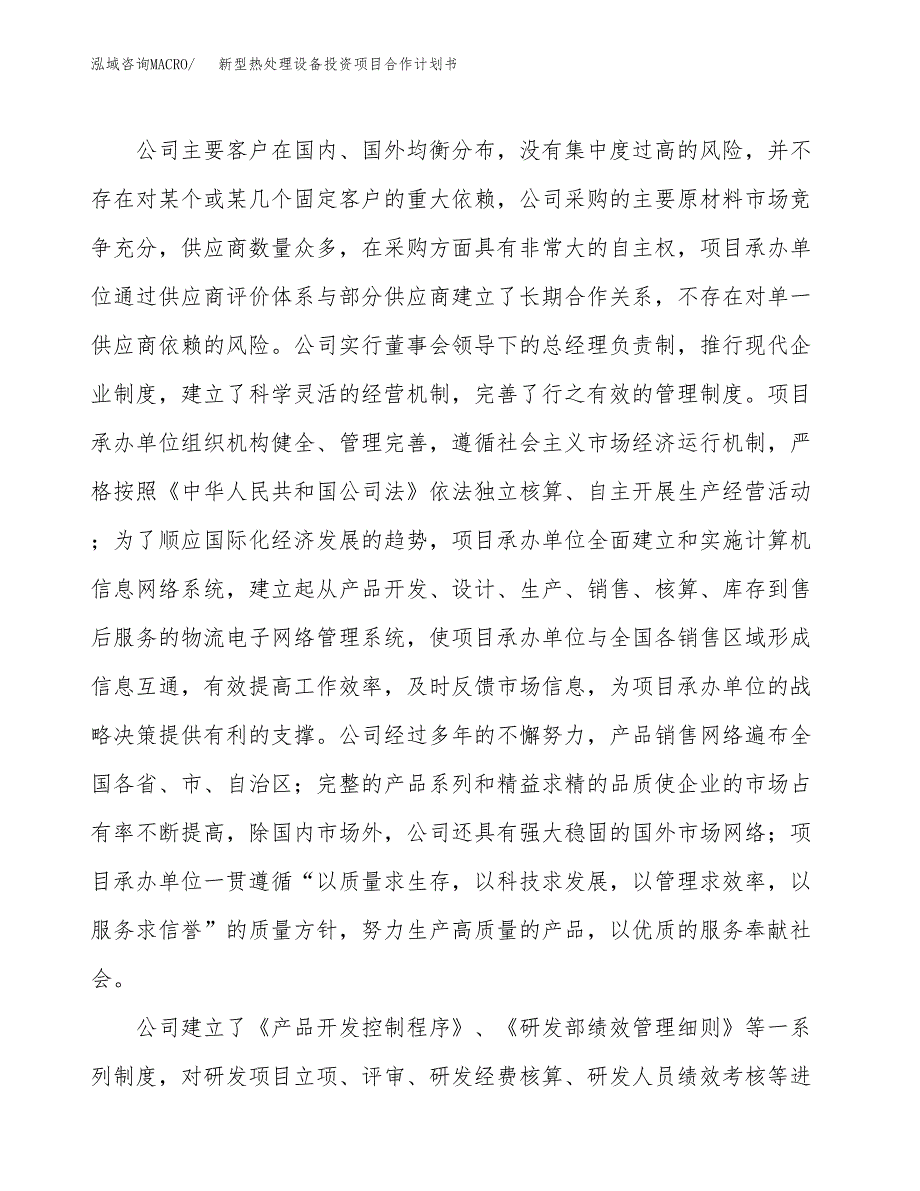 泓域咨询MACRO/ 新型热处理设备投资项目合作计划书
公司主要客户在国内、国外均衡分布，没有集中度过高的风险，并不
存在对某个或某几个固定客户的重大依赖，公司采购的主要原材料市场竞
争充分，供应商数量众多，在采购方面具有非常大的自主权，项目承办单
位通过供应商评价体系与部分供应商建立了长期合作关系，不存在对单一
供应商依赖的风险。公司实行董事会领导下的总经理负责制，推行现代企
业制度，建立了科学灵活的经营机制，完善了行之有效的管理制度。项目
承办单位组织机构健全、管理完善，遵循社会主义市场经济运行机制，严
格按照《中华人民共和国公司法》依法独立核算、自主开展生产经营活动
；为了顺应国际化经济发展的趋势，项目承办单位全面建立和实施计算机
信息网络系统，建立起从产品开发、设计、生产、销售、核算、库存到售
后服务的物流电子网络管理系统，使项目承办单位与全国各销售区域形成
信息互通，有效提高工作效率，及时反馈市场信息，为项目承办单位的战
略决策提供有利的支撑。公司经过多年的不懈努力，产品销售网络遍布全
国各省、市、自治区；完整的产品系列和精益求精的品质使企业的市场占
有率不断提高，除国内市场外，公司还具有强大稳固的国外市场网络；项
目承办单位一贯遵循“以质量求生存，以科技求发展，以管理求效率，以
服务求信誉”的质量方针，努力生产高质量的产品，以优质的服务奉献社
会。
公司建立了《产品开发控制程序》、《研发部绩效管理细则》等一系
列制度，对研发项目立项、评审、研发经费核算、研发人员绩效考核等进